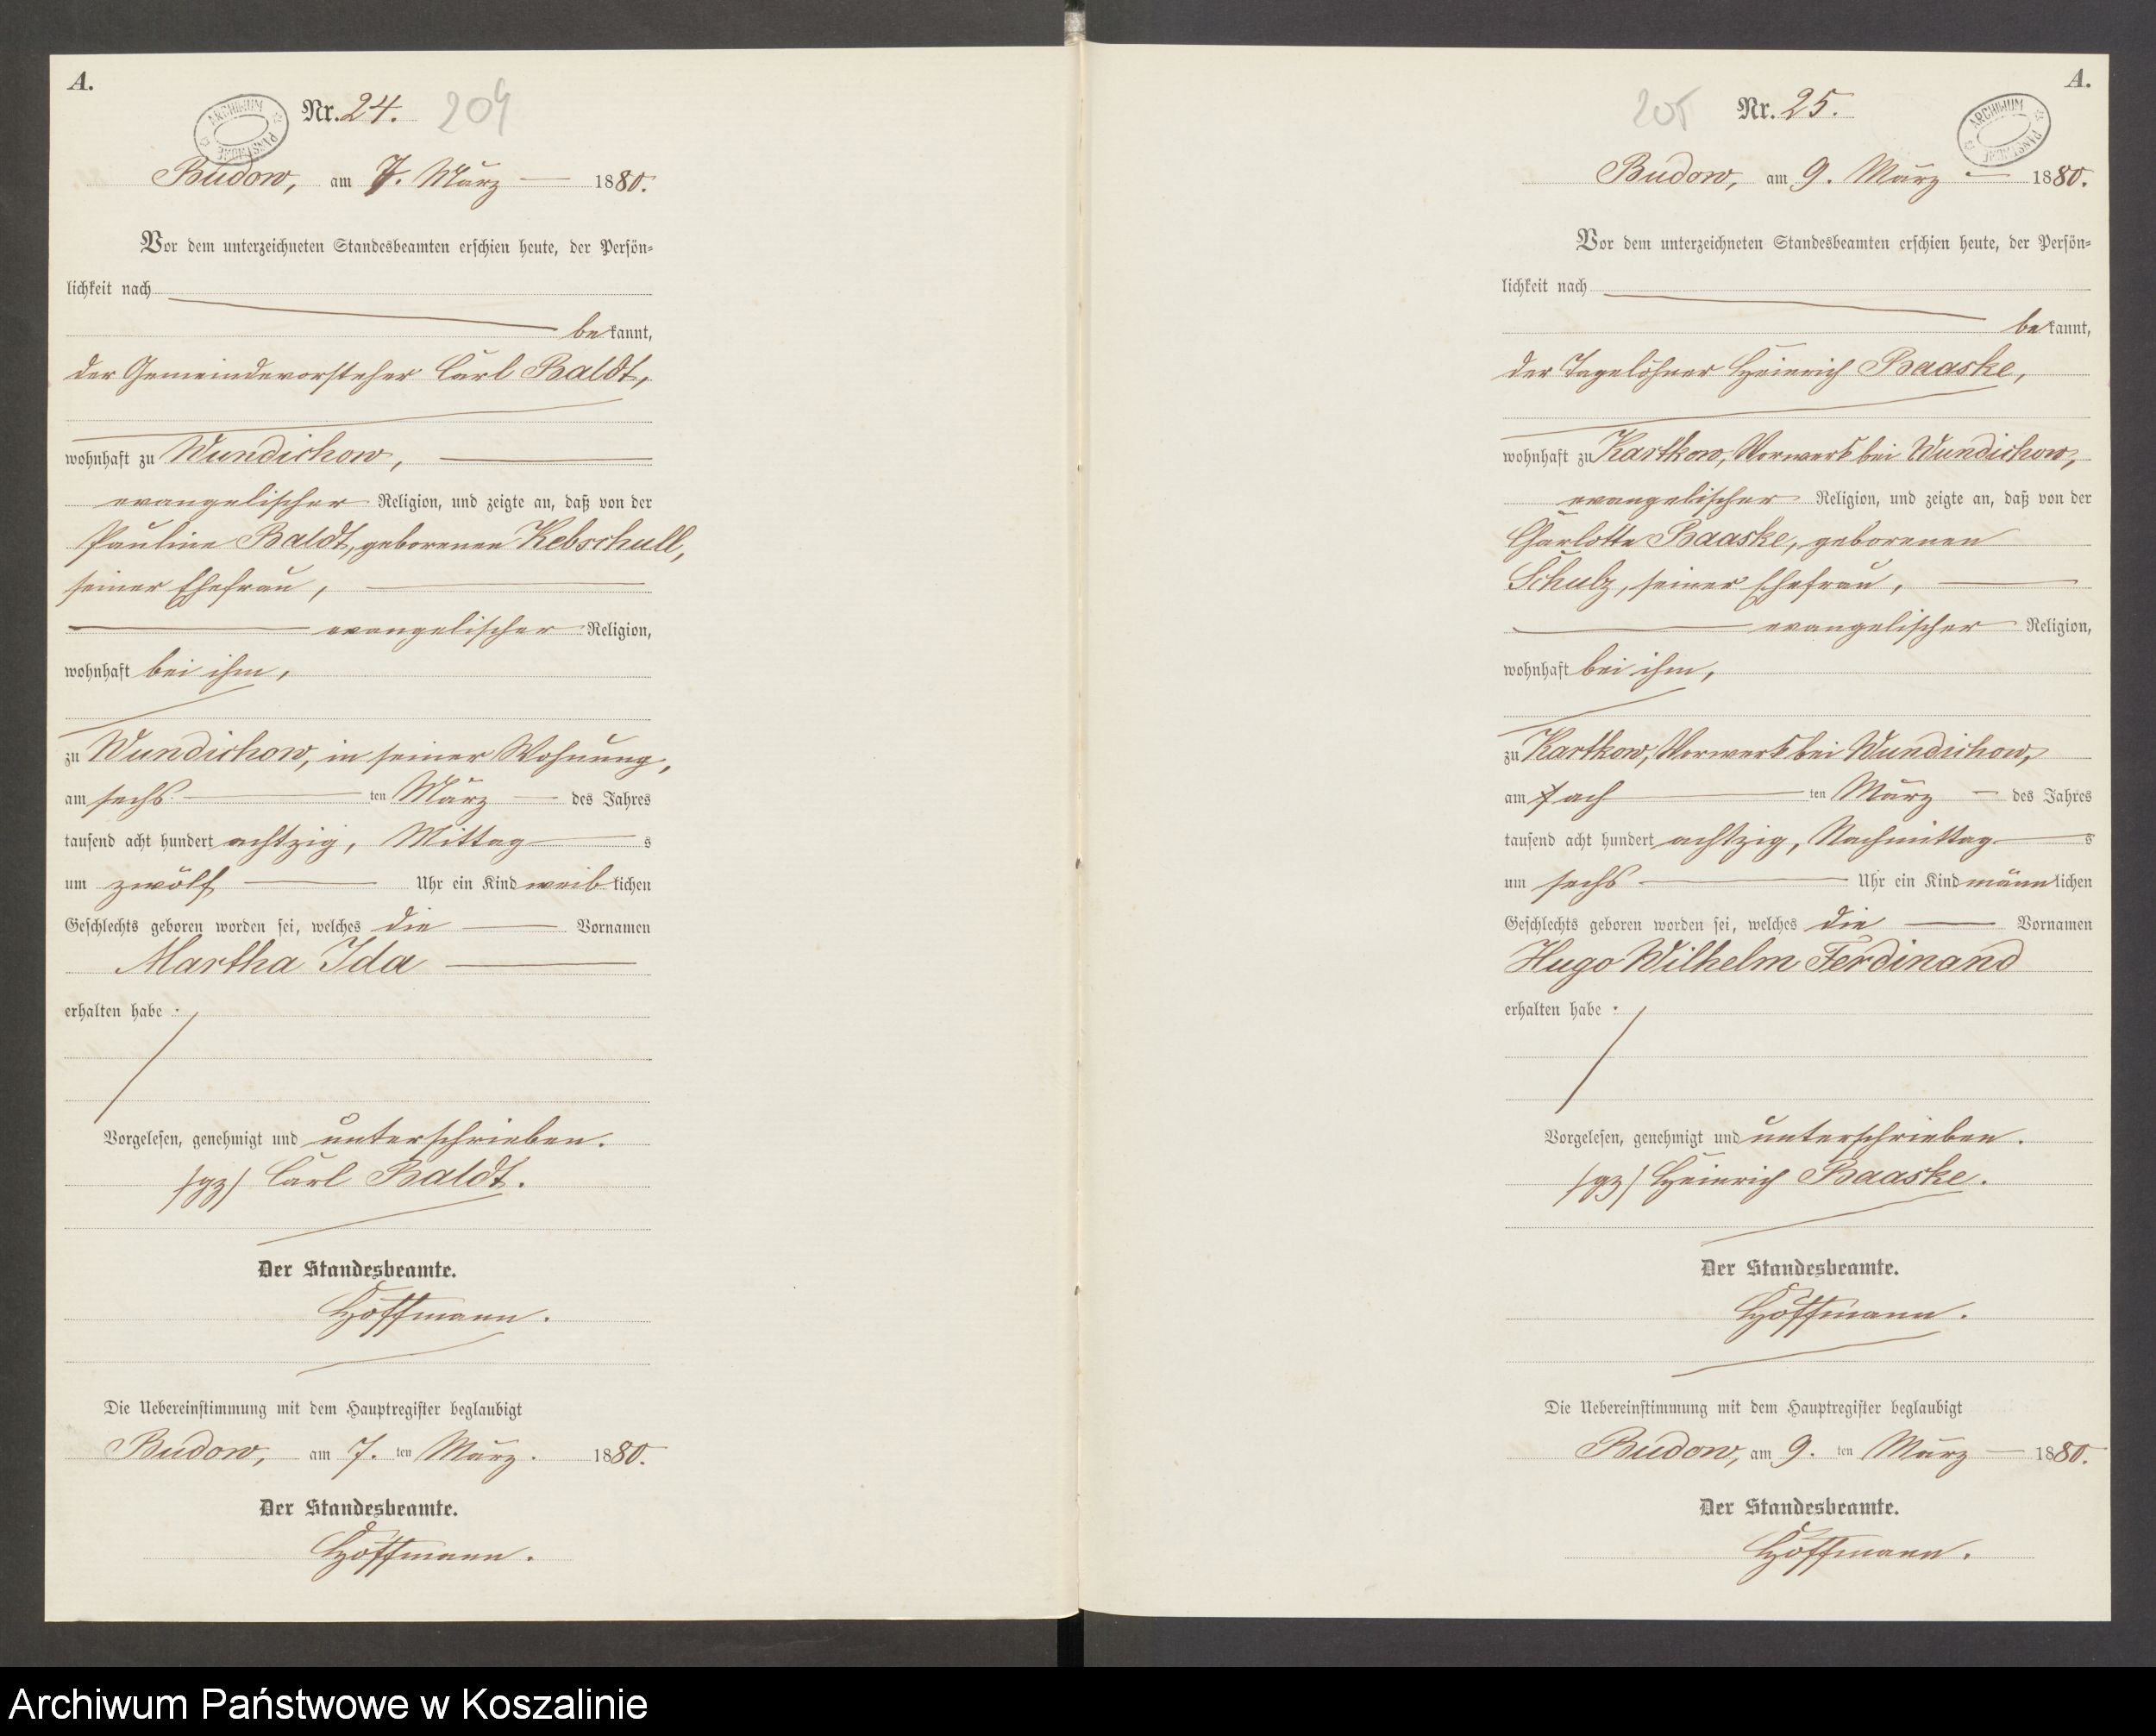 A.
Nr. 24.
204
ARCHIWUM PAŃSTWOWE
Budow, am 7. März 1880.
Vor dem unterzeichneten Standesbeamten erschien heute, der Persön=
lichkeit nach
bekannt,
der Gemeindevorsteher Carl Baldt,
wohnhaft zu Wundichow,
evangelischer Religion, und zeigte an, daß von der
Pauline Baldt, geborenen Kebschull,
seiner Ehefrau,
evangelischer Religion,
wohnhaft bei ihm,
zu Wundichow, in seiner Wohnung,
am sechs ten März des Jahres
tausend acht hundert achtzig, Mittag s
um zwölf Uhr ein Kind weiblichen
Geschlechts geboren worden sei, welches die Vornamen
Martha Ida
erhalten habe.
Vorgelesen, genehmigt und unterschrieben.
/gz/ Carl Baldt.
Der Standesbeamte.
Hoffmann.
Die Uebereinstimmung mit dem Hauptregister beglaubigt
Budow, am 7. ten März. 1880.
Der Standesbeamte.
Hoffmann.
A.
205
Nr. 25.
ARCHIWUM PAŃSTWOWE
Budow, am 9. März 1880.
Vor dem unterzeichneten Standesbeamten erschien heute, der Persön=
lichkeit nach
bekannt,
der Tagelöhner Heinrich Baaske,
wohnhaft zu Kartkow, Vorwerk bei Wundichow,
evangelischer Religion, und zeigte an, daß von der
Charlotte Baaske, geborenen
Schulz, seiner Ehefrau,
evangelischer Religion,
wohnhaft bei ihm,
zu Kartkow, Vorwerk bei Wundichow,
am ach ten März des Jahres
tausend acht hundert achtzig, Nachmittag s
um sechs Uhr ein Kind männlichen
Geschlechts geboren worden sei, welches die Vornamen
Hugo Wilhelm Ferdinand
erhalten habe.
Vorgelesen, genehmigt und unterschrieben.
/gz/ Heinrich Baaske.
Der Standesbeamte.
Hoffmann.
Die Uebereinstimmung mit dem Hauptregister beglaubigt
Budow, am 9. ten März 1880.
Der Standesbeamte.
Hoffmann.
Archiwum Państwowe w Koszalinie